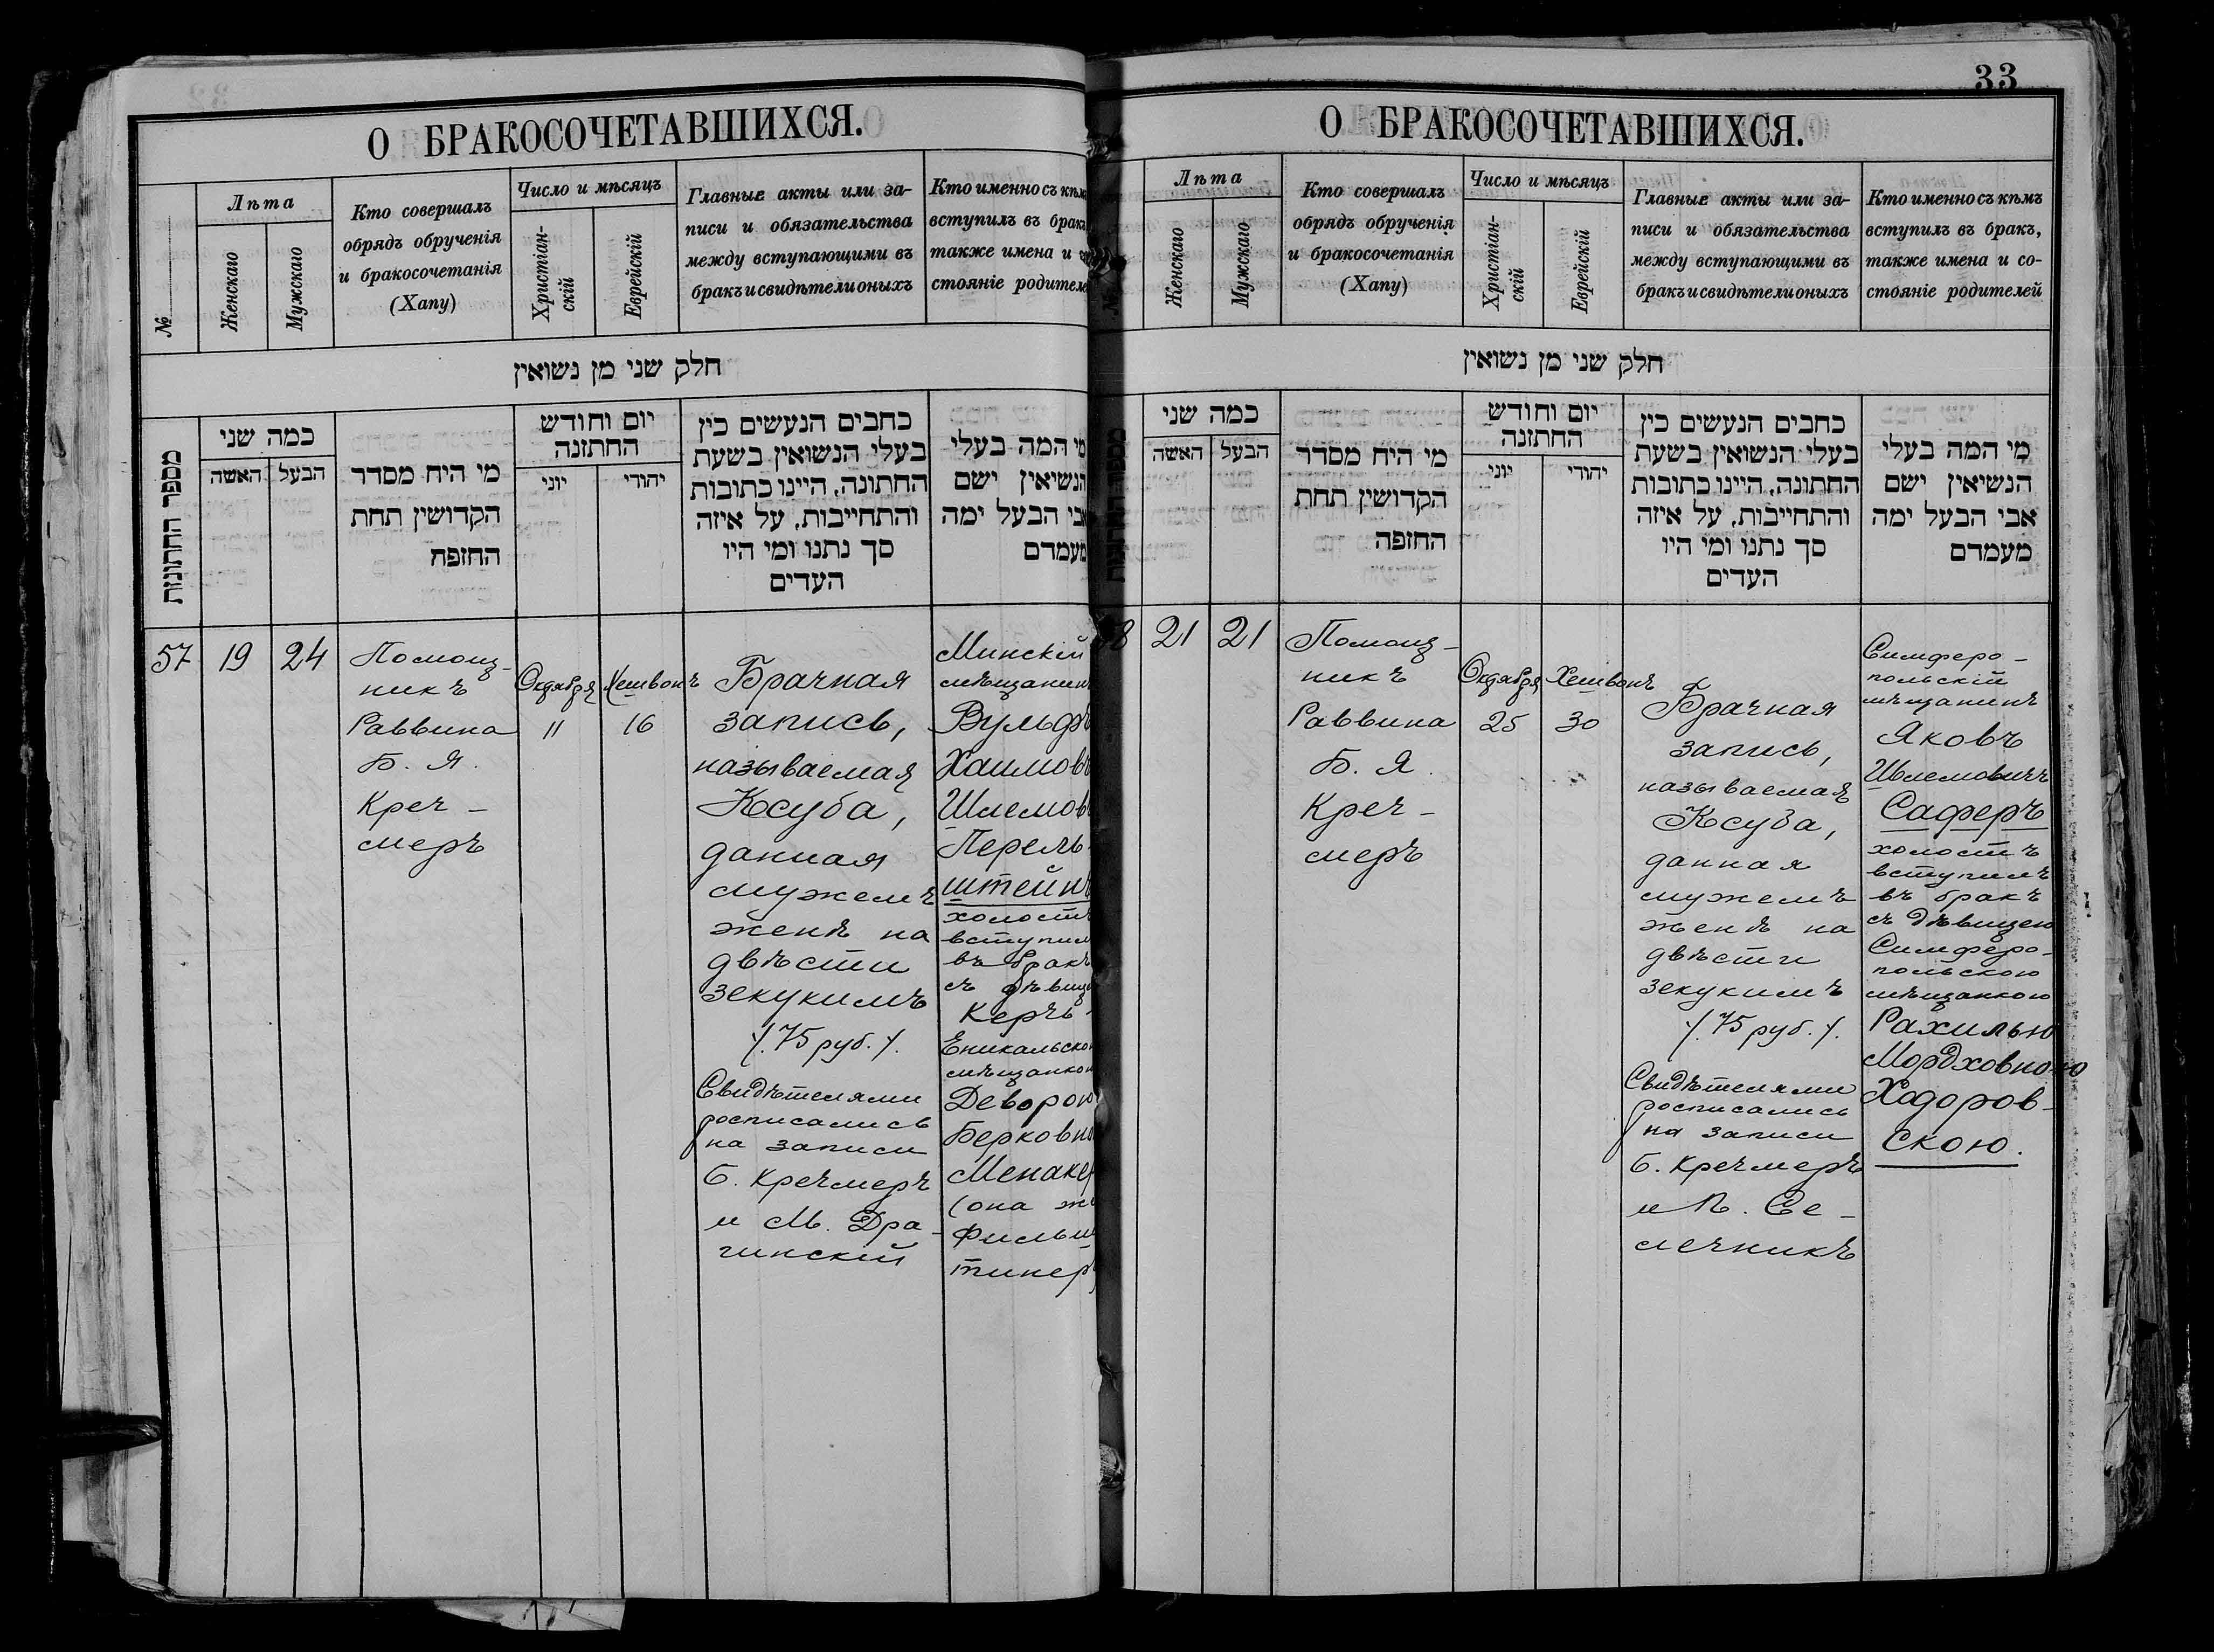 О БРАКОСОЧЕТАВШИХСЯ.
№
Лѣта
Женскаго
Мужскаго
Кто совершалъ
обрядъ обрученія
и бракосочетанія
(Хапу)
Число и мѣсяцъ
Христіан-
скій
Еврейскій
Главные акты или за-
писи и обязательства
между вступающими въ
бракъ и свидѣтели оныхъ
Кто именно съ кѣмъ
вступилъ въ бракъ
также имена и
стояніе родителе
חלק שני מן נשואין
מספר החתונות
כמה שני
האשה
הבעל
מי היח מסדר
הקדושין תחת
החופח
יום וחודש
החתזנה
יוני
יהודי
כחבים הנעשים כין
בעלי הנשואין בשעת
החתונה, היינו כתובות
והתחייבות, על איזה
סך נתנו ומי היו
העדים
מי המה בעלי
הנשיאין ישם
אבי הבעל ימה
מעמדם
57
19
24
Помощ-
никъ
Раввина
Б. Я.
Креч-
меръ
Октября
11
Хешвонъ
16
Брачная
запись,
называемая
Ксуба,
данная
мужемъ
женѣ на
двѣсти
зекукимъ
/.75 руб./.
Свидѣтелями
росписались
на записи
Б. Кречмеръ
и М. Дра-
гинскій
Минскій
мѣщанинъ
Вульфъ
Хаимовъ
Шлемов
Перель-
штейнъ
холостъ
вступил
въ бракъ
съ дѣвице
Керчь-
Еникальско
мѣщанкою
Деворою
Берковно
Менакер
(она же
Фильш
тинер)
33
О БРАКОСОЧЕТАВШИХСЯ.
Лѣта
Женскаго
Мужскаго
Кто совершалъ
обрядъ обрученія
и бракосочетанія
(Хапу)
Число и мѣсяцъ
Христіан-
скій
Еврейскій
Главные акты или за-
писи и обязательства
между вступающими въ
бракъ и свидѣтели оныхъ
Кто именно съ кѣмъ
вступилъ въ бракъ,
также имена и со-
стояніе родителей
חלק שני מן נשואין
כמה שני
האשה
הבעל
מי היח מסדר
הקדושין תחת
החזפה
יום וחודש
החתזנה
יוני
יהודי
כחבים הנעשים כין
בעלי הנשואין בשעת
החתונה, היינו כתובות
והתחייבות, על איזה
סך נתנו ומי היו
העדים
מי המה בעלי
הנשיאין ישם
אבי הבעל ימה
מעמדם
8
21
21
Помощ-
никъ
Раввина
Б. Я.
Креч-
меръ
Октября
25
Хешвонъ
30
Брачная
запись,
называемая
Ксуба,
данная
мужемъ
женѣ на
двѣсти
зекукимъ
/.75 руб./.
Свидѣтелями
росписались
на записи
Б. Кречмеръ
и П. Се-
лечникъ
Симферо-
польскій
мѣщанинъ
Яковъ
Шлемовичъ
Саферъ
холостъ
вступилъ
въ бракъ
съ дѣвицею
Симферо-
польскою
мѣщанкою
Рахилью
Мордховною
Ходоров-
скою.